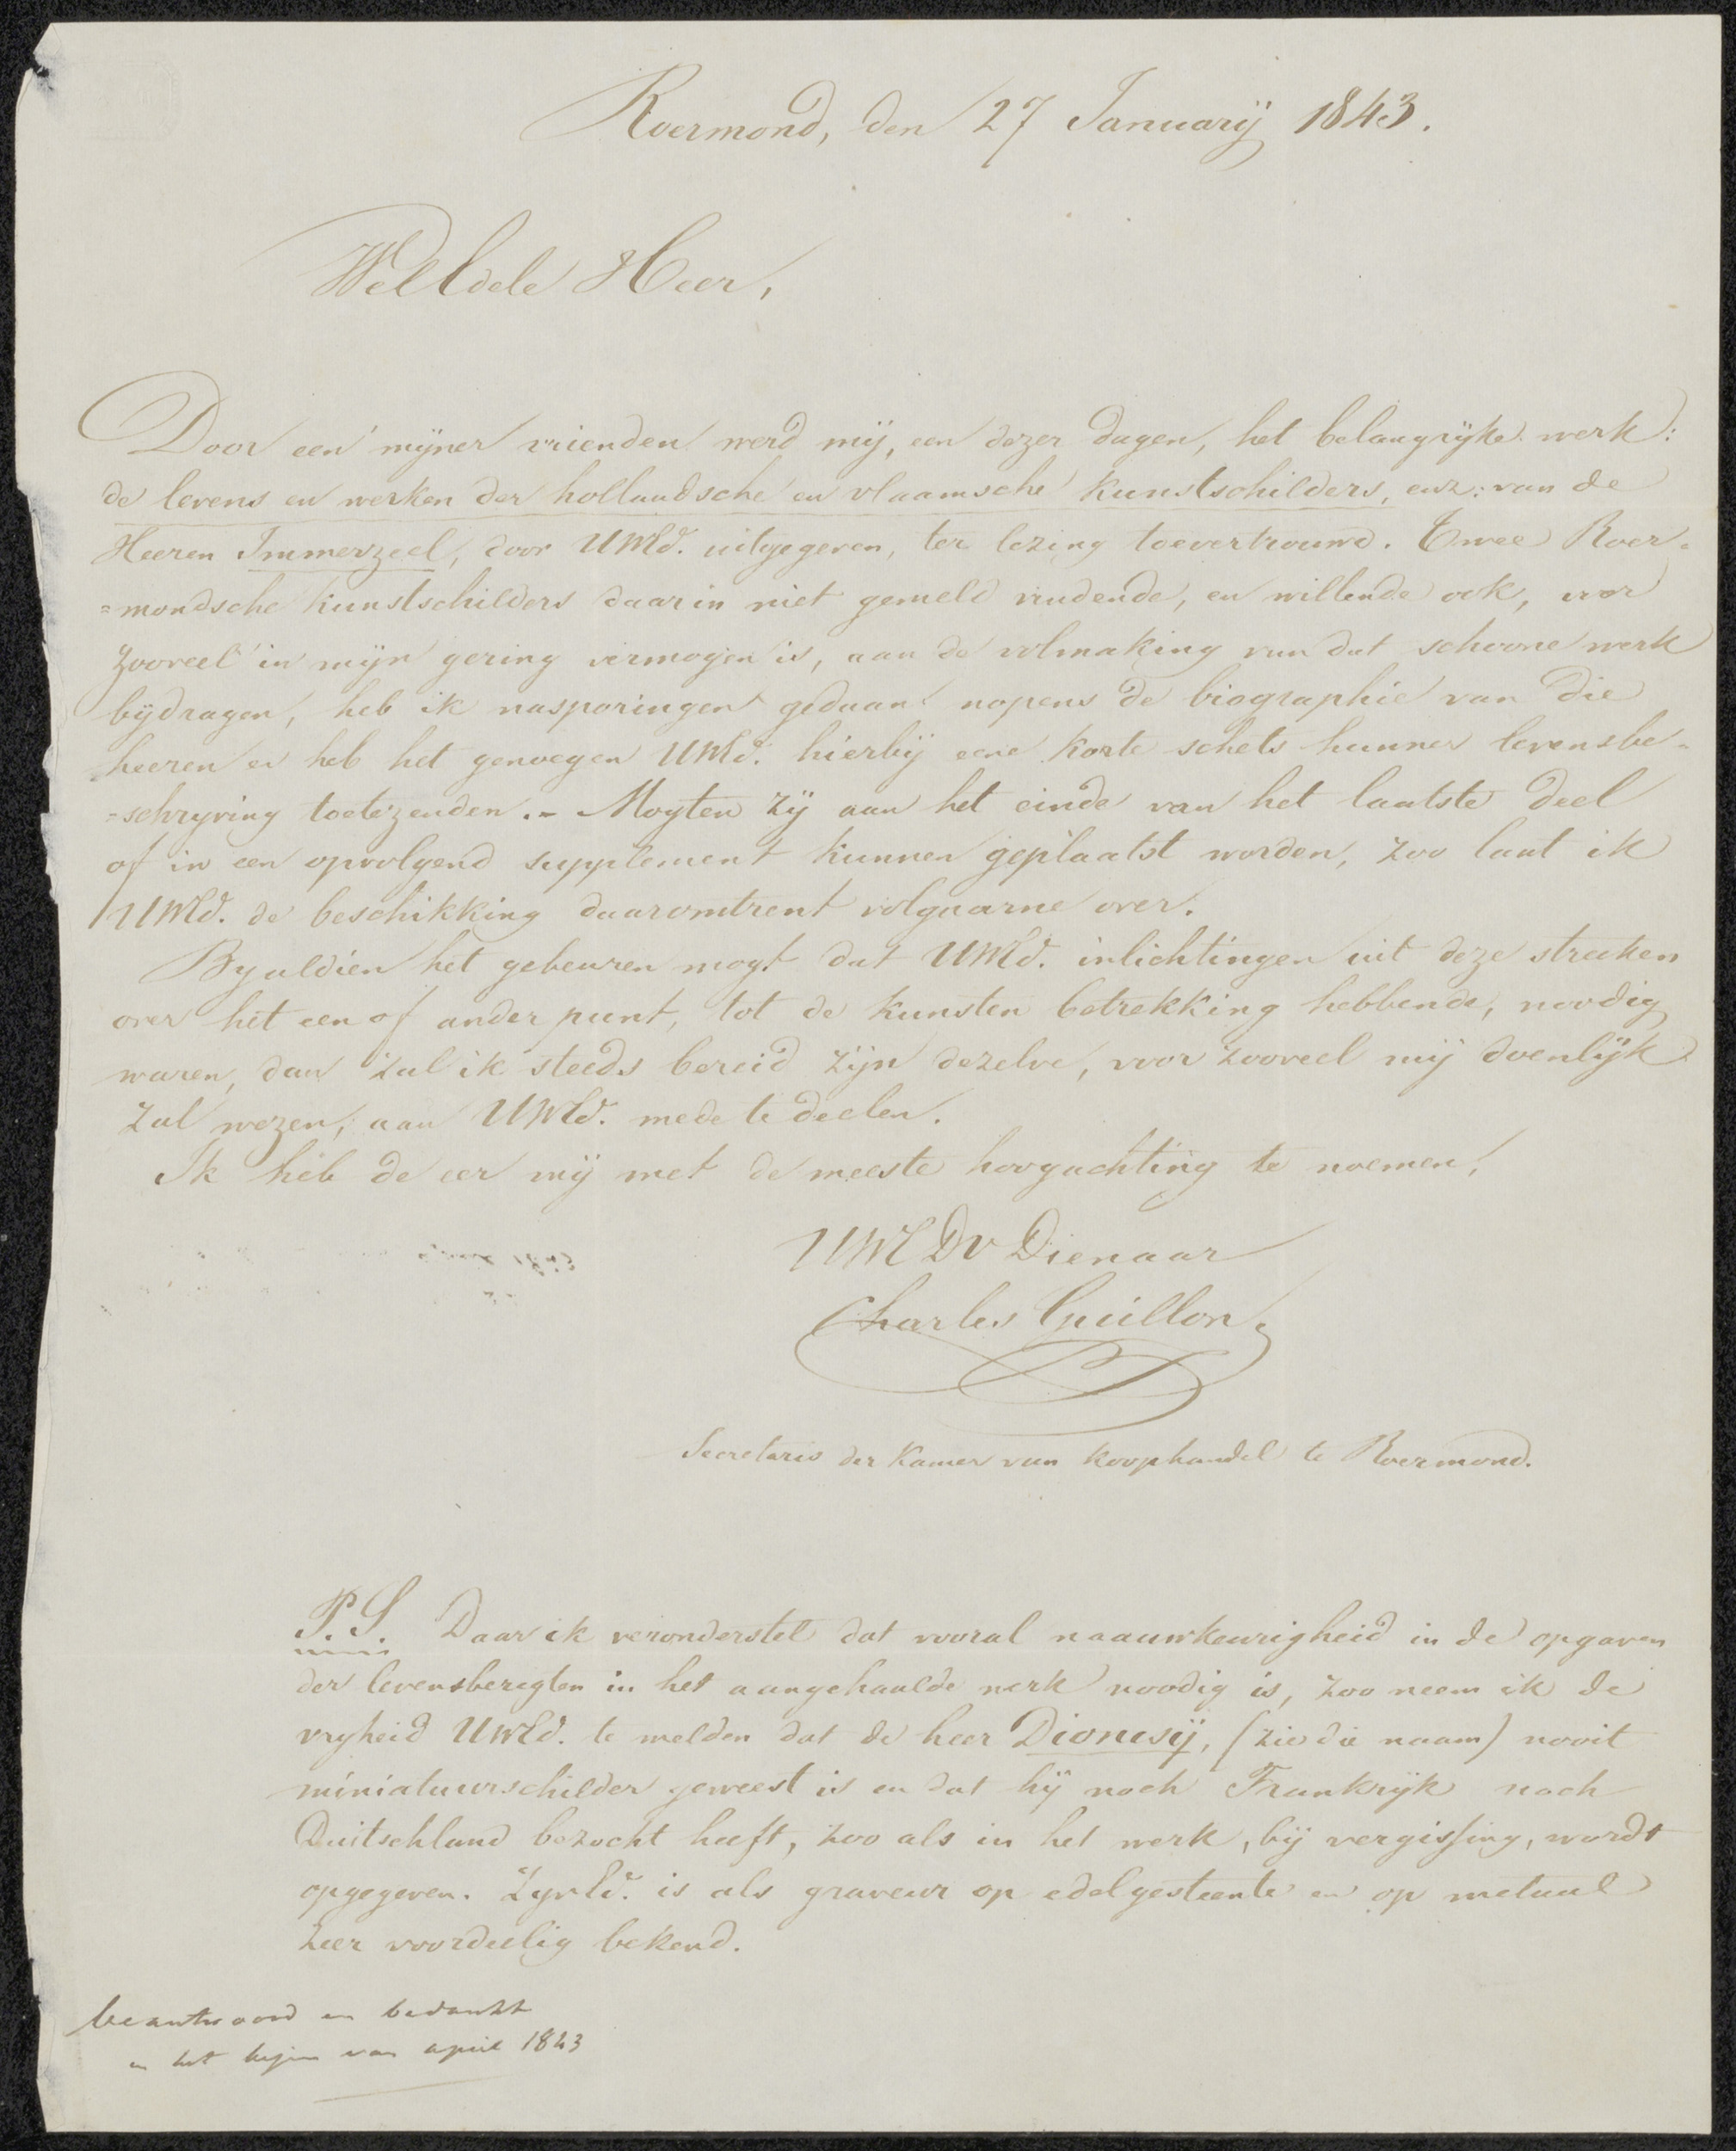 Roermond, den 27 Januarij 1843.
WelEdele Heer,
Door een mijner vrienden werd mij, een dezer dagen, het belangrijke werk:
de levens en werken der hollandsche en vlaamsche kunstschilders, enz: van de
Heeren Immerzeel, door UWEd. uitgegeven, ter lezing toevertrouwd. Twee Roer-
=mondsche kunstschilders daarin niet gemeld vindende, en willende ook, voor
zooveel in mijn gering vermogen is, aan de volmaking van dat schoone werk
bijdragen, heb ik nasporingen gedaan nopens de biographie van die
heeren en heb het genoegen UWEd. hierbij eene korte schets hunner levensbe-
=schryving toetezenden. - Mogten zij aan het einde van het laatste deel
of in een opvolgend supplement kunnen geplaatst worden, zoo laat ik
UWEd. de beschikking daaromtrent volgaarne over.
Byaldien het gebeuren mogt dat UWEd. inlichtingen uit deze streeken
over het een of ander punt, tot de kunsten betrekking hebbende, noodig
waren, dan zal ik steeds bereid zijn dezelve, voor zooveel mij doenlijk
zal wezen, aan UWEd. mede te deelen.
Ik heb de eer mij met de meeste hoogachting te noemen,
UWE DV Dienaar
Charles Guillon
Secretaris der Kamer van koophandel te Roermond.
P.S. Daar ik veronderstel dat vooral naauwkeurigheid in de opgaven
der levensberegten in het aangehaalde werk noodig is, zoo neem ik de
vryheid UWEd. te melden dat de heer Dionesij, (zie die naam) nooit
miniatuurschilder geweest is en dat hij noch Frankrijk noch
Duitschland bezocht heeft, zoo als in het werk, bij vergissing, wordt
opgegeven. ZynEd. is als graveur op edelgesteente en op metaal
zeer voordeelig bekend.
beantwoord en bedankt
in het begin van april 1843